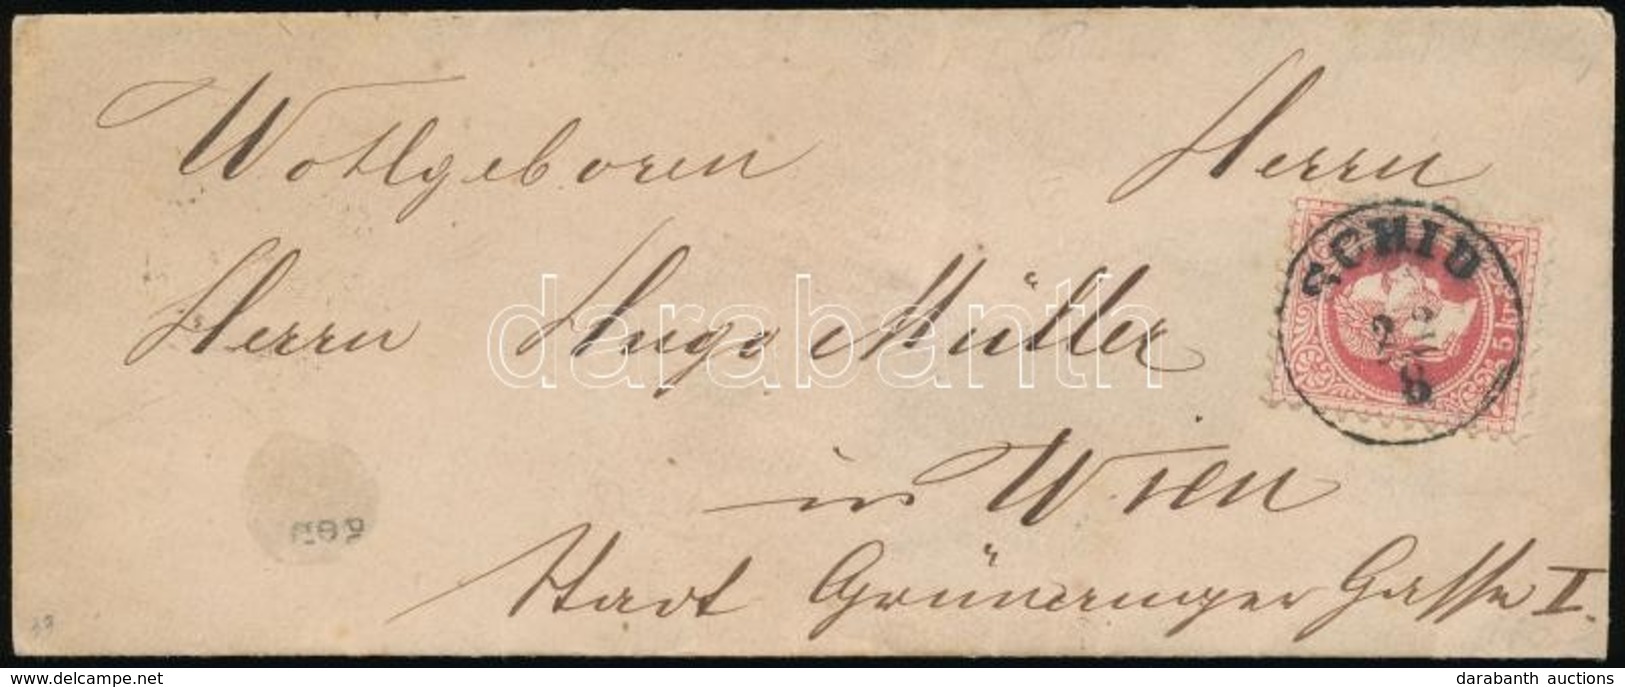 Wohlgeboren Herrn
Herrn Hugo Müller
in Wien
Stadt Grünanger Gasse I.
22
8
5 kr
darabanth
delcampe.net
darabanth auctions